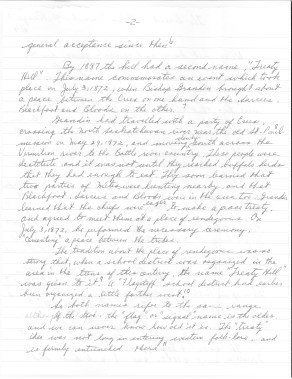 -2-
general acceptance since then.
By 1887, the hill had a second name, "Treaty
Hill". This name commemorates an event which took
place on July 3, 1872, when Bishop Grandin brought about
a peace between the Crees on one hand and the Sarcees,
Blackfoot and Bloods on the other.
Grandin had travelled with a party of Crees,
crossing the North Saskatchewan river near the old St. Paul
mission on May 28, 1872, and moving south across the
Vermilion river to the Battle river country. These people were
destitute and it was not until they reached buffalo
that they had enough to eat. They soon learned that
two parties of were hunting nearby, and that
Blackfoot, Sarcees and Bloods were in the area too. Grandin
learned that the chiefs were eager to make a peace treaty
and agreed to meet them at a place of rendezvous. On
July 3, 1872, he performed the necessary ceremony,
"cementing" a peace between the tribes.
The tradition about the place of rendezvous was so
strong that, when a school district was organized in the
area in the of this century, the name "Treaty Hill"
was given to it. A "Flagstaff" school district had earlier
been organized a little farther west.
So both names refer to the same range
of the two - the "flag" or "signal" name is the older,
and we can never know how old it is. The "treaty"
idea was not long in entering western folk-lore, and
is firmly entrenched there.